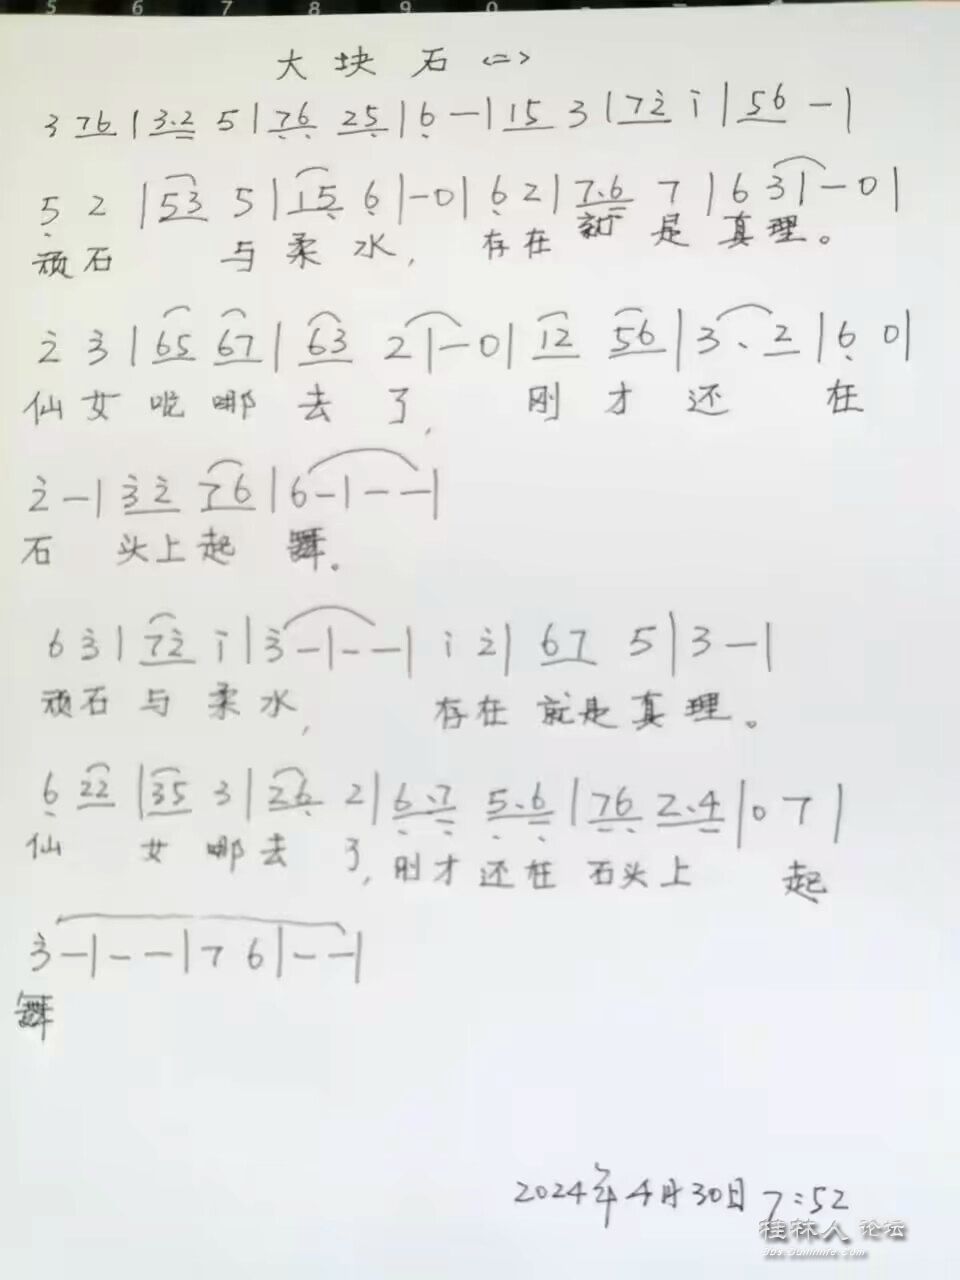 5 6 7 8 9 0
大块石<二>
3 76 | 3.2 5 | 76 25 | 6 — | 15 3 | 72 i | 56 — |
5 2 | 53 5 | 15 6 | — 0 | 6 2 | 7.6 7 | 6 3 | — 0 |
顽石与柔水，存在就是真理。
2 3 | 65 67 | 63 2 | — 0 | 12 56 | 3 . 2 | 6 0 |
仙女吃哪去了，刚才还在
2 — | 32 76 | 6 — | — — |
石头上起舞。
6 3 | 72 i | 3 — | — — | i 2 | 67 5 | 3 — |
顽石与柔水，存在就是真理。
6 22 | 35 3 | 26 2 | 6.7 5.6 | 76 2.4 | 0 7 |
仙女哪去了，刚才还在石头上起
3 — | — — | 7 6 | — — |
舞
2024年4月30日 7:52
桂林人论坛
bbs.guilinlife.com